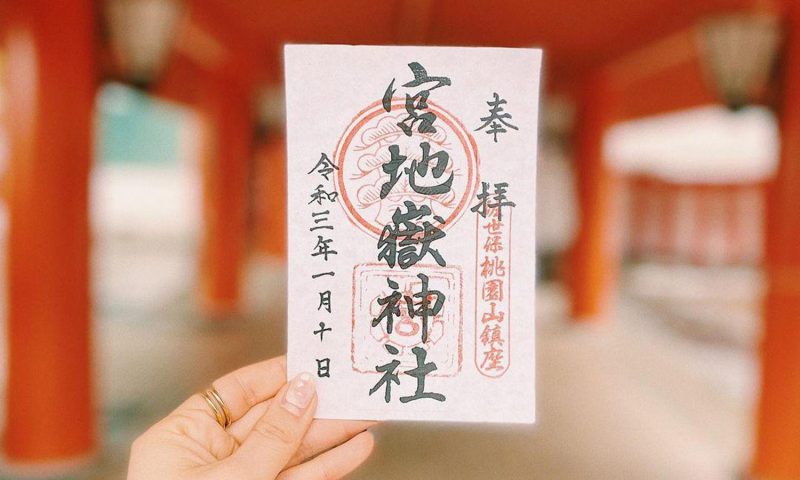 奉拝
世保桃園山鎮座
宮地嶽神社
令和三年一月十日